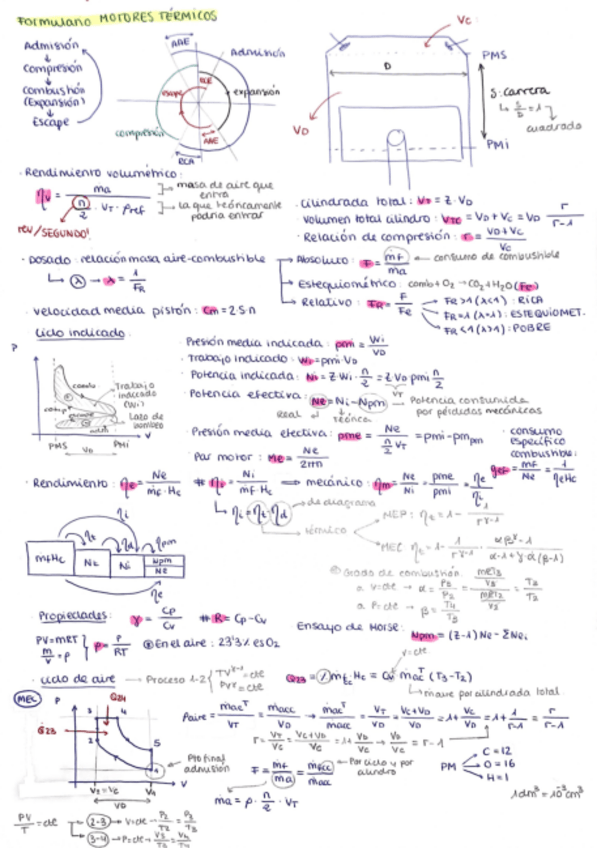 Formulario MOTORES TÉRMICOS
Admisión
Compresión
combustión
(Expansión)
Escape
AAE
Admisión
escape
expansión
compresión
AAE
RCA
Vc
PMS
D
S: carrera
S/D = 1
cuadrado
VD
PMI
· Rendimiento volumétrico:
ηv = ma / (n/2 · VT · ρref)
masa de aire que entra
la que teóricamente podría entrar
rev/SEGUNDO!
· Cilindrada total: VT = Z · VD
· Volumen total cilindro: VTC = VD + VC = VD r/(r-1)
· Relación de compresión: r = (VD+VC)/VC
· Dosado: relación masa aire-combustible
λ → λ = 1/FR
Absoluto: F = mf/ma
consumo de combustible
Estequiométrico: comb + O2 → CO2 + H2O (Fe)
Relativo: FR = F/Fe
FR>1 (λ<1): RICA
FR=1 (λ=1): ESTEQUIOMET.
FR<1 (λ>1): POBRE
· Velocidad media pistón: cm = 2·S·n
Ciclo indicado
P
Trabajo indicado (Wi)
Lazo de bombeo
PMS
PMI
V
VD
Presión media indicada: pmi = Wi/VD
· Trabajo indicado: Wi = pmi·VD
· Potencia indicada: Ni = Z·Wi·n/2 = Z VD pmi n/2
VT
· Potencia efectiva: Ne = Ni - Npm
Potencia consumida por pérdidas mecánicas
Real
teórica
· Presión media efectiva: pme = Ne/(n/2 VT) = pmi - pmpm
· Par motor: Me = Ne/2πn
· consumo específico combustible:
gef = mf/Ne = 1/ηeHc
· Rendimiento: ηe = Ne/(mf·Hc)
# ηi = Ni/(mf·Hc)
⇒ mecánico: ηm = Ne/Ni = pme/pmi = ηe/ηi
ηi = ηt·ηd
de diagrama
térmico
MEP: ηt = 1 - 1/r^(γ-1)
MEC ηt = 1 - 1/r^(γ-1) · (αβ^γ - 1)/(α-1+γ·α(β-1))
ηi
ηt
ηd
ηpm
mfHc
Nt
Ni
Npm
Ne
ηe
Grado de combustión
a V=cte → α = P3/P2 = T3/T2
a P=cte → β = T4/T3
Propiedades: γ = Cp/Cv
# R = Cp - Cv
PV = mRT
m/V = ρ
ρ = P/RT
En el aire: 23'3% es O2
Ensayo de Morse:
Npm = (Z-1)Ne - ΣNei
· ciclo de aire → Proceso 1-2
TV^(γ-1) = cte
PV^γ = cte
V=cte
(T3-T2)
masa por cilindrada total
MEC
P
Q34
Q23
3
4
2
5
1
V2 = Vc
V1
V
VD
Pto final admisión
r = VT/VC = (VC+VD)/VC = 1 + VD/VC → VD/VC = r-1
Por ciclo y por cilindro
ma = ρ · n/2 · VT
PM
C = 12
O = 16
H = 1
1dm³ = 10⁻³cm³
PV/T = cte
2-3 → V=cte → P2/T2 = P3/T3
3-4 → P=cte → V3/T3 = V4/T4